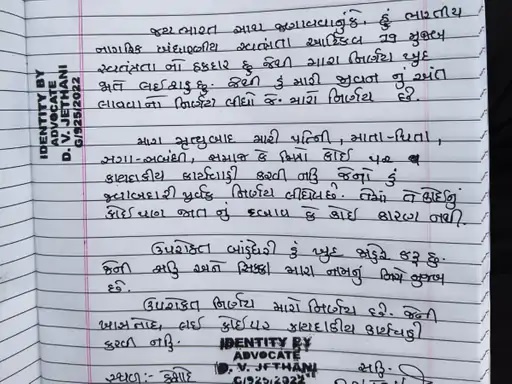 જય ભારત સાથ જણાવવાનુંકે, હું ભારતીય
નાગરિક બંધારણીય સ્વતંત્રતા આર્ટિકલ 19 મુજબ
સ્વતંત્રતા નો હકદાર છુ જેથી મારા નિર્ણય ખુદ
જાતે લઈ શકુ છુ. જેથી હું મારી જીવન નું અંત
લાવવાનો નિર્ણય લીધો જે મારો નિર્ણય છે.
મારા મૃત્યુબાદ મારી પત્નિ, માતા-પિતા,
સગા-સબંધી, સમાજ કે મિત્રો કોઈ પર
કાયદાકીય કાર્યવાહી કરવી નહિ જેનો હું
જવાબદારી પૂર્વક નિર્ણય લીધેલ છે. તેમાં ને કોઈનું
કોઈ પણ જાત નું દબાણ કે કોઈ કારણ નથી.
ઉપરોક્ત બાંહેધરી હું ખુદ જાહેર કરૂ છુ.
જેની સહિ અને સિક્કા મારા નામનું નિચે મુજબ
છે.
ઉપરોક્ત નિર્ણય મારો નિર્ણય છે. જેની
ખાસ નોંધ લઈ કોઈપર કાયદાકીય કાર્યવાહી
કરવી નહિ.
સ્થળ:-
સહિ.
IDENTITY BY
ADVOCATE
D. V. JETHANI
G/925/2022
IDENTITY BY
ADVOCATE
D. V. JETHANI
G/925/2022